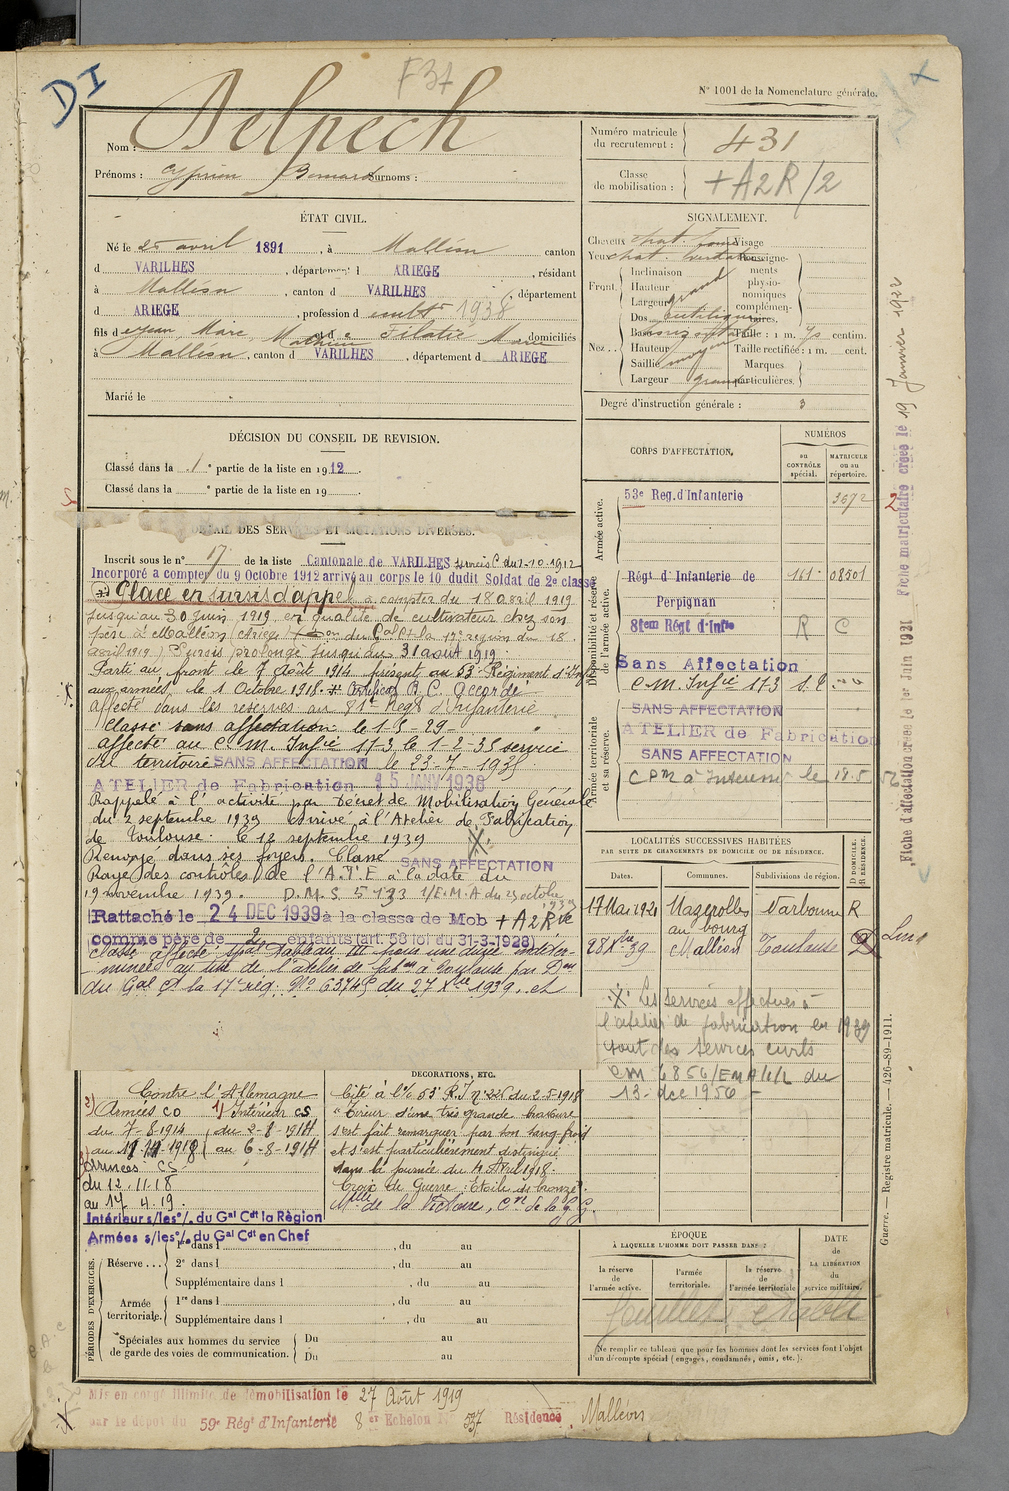 DI
F37
N° 1001 de la Nomenclature générale.
Nom : Delpech
Prénoms : Cyprien Bernard Surnoms :
Numéro matricule du recrutement : 431
Classe de mobilisation : +A2R/2
ÉTAT CIVIL.
Né le 25 avril 1891, à Malléon canton
d VARILHES, département d ARIEGE, résidant
à Malléon, canton d VARILHES, département
d ARIEGE, profession d 1938
fils d Jean Marc Mathieu et d e Filatié Marie domiciliés
à Malléon, canton d VARILHES, département d ARIEGE
Marié le
SIGNALEMENT.
Cheveux chat. foncé Visage
Yeux chat. Renseignements physionomiques complémentaires.
Front. Inclinaison
Hauteur grand
Largeur
Nez.. Dos rectiligne
Base horizontale Taille : 1 m. 75 centim.
Hauteur moyen Taille rectifiée : 1 m. cent.
Saillie Marques
Largeur grand particulières.
Degré d'instruction générale : 3
DÉCISION DU CONSEIL DE REVISION.
Classé dans la 1e partie de la liste en 1912.
Classé dans la e partie de la liste en 19
DÉTAIL DES SERVICES ET MUTATIONS DIVERSES.
Inscrit sous le n° 17 de la liste Cantonale de VARILHES services C du 1-10-1912
Incorporé à compter du 9 Octobre 1912 arrivé au corps le 10 dudit Soldat de 2e classe
Placé en sursis d'appel à compter du 18 avril 1919
jusqu'au 30 juin 1919 en qualité de cultivateur chez son
père à Malléon (Ariège) du Gal Ct la 17e région du 18
avril 1919) Sursis prolongé jusqu'au 31 août 1919.
Parti au front le 7 Août 1914 présent au 53e Régiment d'Inf
aux armées le 1 Octobre 1918. Certificat B.C. Accordé
Affecté dans les réserves au 81e Regt d'Infanterie
Classé sans affectation le 1-5-29
affecté au C. M. Infie 173 le 1-2-35 service
du territoire SANS AFFECTATION le 23-7-1935
ATELIER de Fabrication 15 JANV 1938
Rappelé à l'activité par Décret de Mobilisation Générale
du 2 septembre 1939 Arrivé à l'Atelier de Fabrication
de Toulouse le 12 septembre 1939
Renvoyé dans ses foyers. Classé SANS AFFECTATION
Rayé des contrôles de l'A.I.E à la date du
19 novembre 1939. D.M.S 5733 1/E.M.A du 29 octobre 1939
Rattaché le 24 DEC 1939 à la classe de Mob +A2Rve
comme père de 2 enfants (art. 58 loi du 31-3-1928)
Classé affecté spécial Tableau III pour une durée indéter-
minée au titre de l'atelier de fabon à Toulouse par Don
du Gal Ct la 17e rég. No 6374S du 27 Xbre 1939. et
CORPS D'AFFECTATION.
NUMÉROS
au CONTRÔLE spécial.
MATRICULE ou au répertoire.
Armée active.
53e Reg. d'Infanterie 3672
Disponibilité et réserve de l'armée active.
Régt d'Infanterie de Perpignan 161 08501
81em Régt d'Infie R C
Sans Affectation
C.M. Infie 173 S.C.
Armée territoriale et sa réserve.
SANS AFFECTATION
ATELIER de Fabrication
SANS AFFECTATION
le 18.5
LOCALITÉS SUCCESSIVES HABITÉES
PAR SUITE DE CHANGEMENTS DE DOMICILE OU DE RÉSIDENCE.
Dates. Communes. Subdivisions de région. D DOMICILE. R RÉSIDENCE.
17 Mai 1921 Mazerolles au bourg Narbonne R
28 Xbre 39 Malléon Toulouse D
Les services effectués à
l'atelier de fabrication en 1939
sont des services civils
CM 6856/EMA/1/L du
13-dce 1956
DÉCORATIONS, ETC.
Contre l'Allemagne
2) Armées CO 1) Intérieur CS
du 7-8-1914 du 2-8-1914
au 11-11-1918 au 6-8-1914
3) Armées CS
du 12.11.18
au 17.4.19.
Intérieur s/les o/. du Gal Cdt la Région
Armées s/les o/. du Gal Cdt en Chef
Cité à l'o/. 53e R.I n°226 du 2-5-1918
"Tireur d'une très grande bravoure
s'est fait remarquer par son sang-froid
et s'est particulièrement distingué
dans la journée du 4 Avril 1918.
Croix de Guerre : Etoile de bronze.
Mlle de la Victoire, Cve de la G.G.
PÉRIODES D'EXERCICES.
Réserve... 1re dans l , du au
2e dans l , du au
Supplémentaire dans l , du au
Armée territoriale. 1re dans l , du au
Supplémentaire dans l , du au
Spéciales aux hommes du service de garde des voies de communication. Du au
Du au
ÉPOQUE
À LAQUELLE L'HOMME DOIT PASSER DANS
la réserve de l'armée active.
l'armée territoriale.
la réserve de l'armée territoriale
DATE de LA LIBÉRATION du service militaire.
feuillet établi
Ne remplir ce tableau que pour les hommes dont les services font l'objet
d'un décompte spécial (engagés, condamnés, omis, etc.).
Mis en congé illimité de démobilisation le 27 Août 1919
par le dépôt du 59e Régt d'Infanterie 8er Echelon N° 537 Résidence Malléon
Fiche d'affectation créée le 1er Juin 1921 Fiche matriculaire créée le 19 Janvier 1922
Guerre. — Registre matricule. — 426-89-1911.